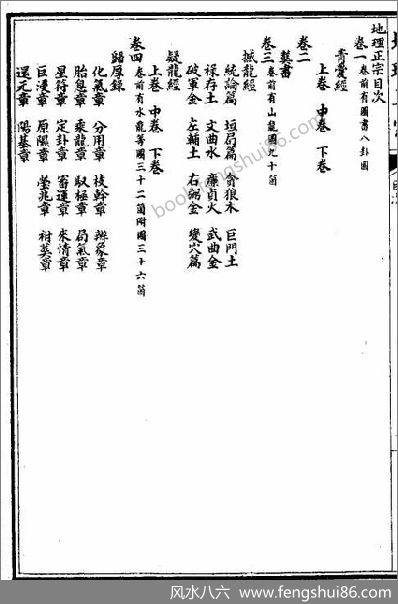 地理正宗目次
卷一 卷前有圖書八卦圖
青囊經
上卷 中卷 下卷
卷二
葬書
卷三 卷前有山龍圖九十箇
撼龍經
統論篇 垣局篇 貪狼木 巨門土
祿存土 文曲水 廉貞火 武曲金
破軍金 左輔土 右弼金 變穴篇
疑龍經
上卷 中卷 下卷
卷四 卷前有水龍等圖三十二箇附圖三十六箇
歸厚錄
化氣章 分用章 枝幹章 辨象章
胎息章 乘龍章 馭極章 局氣章
星符章 定卦章 審運章 來情章
巨浸章 原隰章 塋兆章 祔葬章
還元章 陽基章
book.fengshui86.com
风水八六 www.fengshui86.com